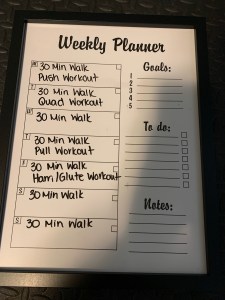 Weekly Planner
M
30 Min Walk
Push Workout
T
30 Min Walk
Quad Workout
W
30 Min Walk
T
30 Min Walk
Pull Workout
F
30 Min Walk
Ham/Glute Workout
S
30 Min Walk
S
30 Min Walk
Goals:
1
2
3
4
5
To do:
Notes: